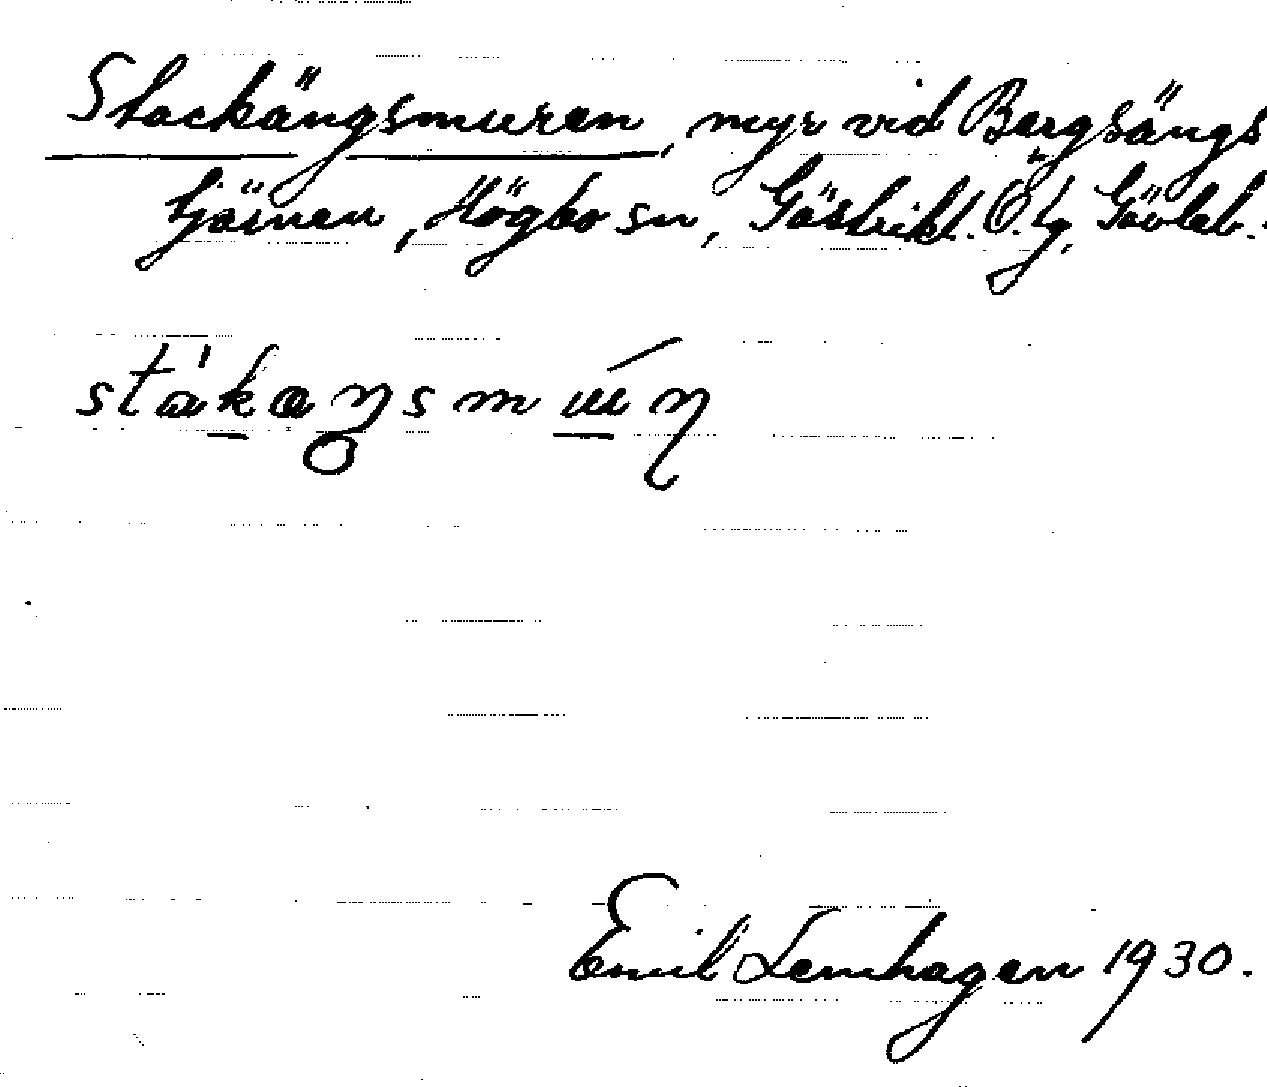 Stackängsmuren, myr vid Bergsängs
tjärnen, Högbo sn, Gästrikl. Ö. tg, Gävleb.
Emil Lemhagen 1930.